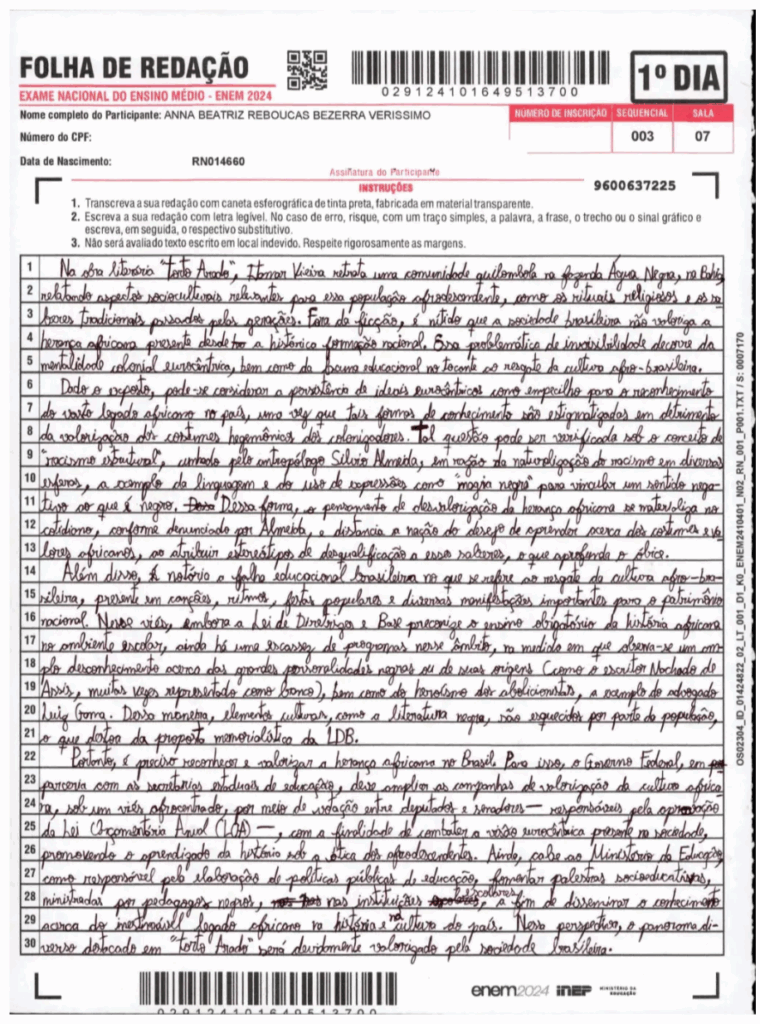 FOLHA DE REDAÇÃO
EXAME NACIONAL DO ENSINO MÉDIO - ENEM 2024
029124101649513700
1º DIA
Nome completo do Participante: ANNA BEATRIZ REBOUCAS BEZERRA VERISSIMO
NÚMERO DE INSCRIÇÃO SEQUENCIAL SALA
Número do CPF:
003 07
Data de Nascimento: RN014660
Assinatura do Participante
INSTRUÇÕES
9600637225
1. Transcreva a sua redação com caneta esferográfica de tinta preta, fabricada em material transparente.
2. Escreva a sua redação com letra legível. No caso de erro, risque, com um traço simples, a palavra, a frase, o trecho ou o sinal gráfico e
escreva, em seguida, o respectivo substitutivo.
3. Não será avaliado texto escrito em local indevido. Respeite rigorosamente as margens.
1 Na obra literária "Torto Arado", Itamar Vieira retrata uma comunidade quilombola na fazenda Água Negra, na Bahia,
2 relatando aspectos socioculturais relevantes para essa população afrodescendente, como os rituais religiosos e os sa-
3 beres tradicionais passados pelas gerações. Fora da ficção, é nítido que a sociedade brasileira não valoriza a
4 herança africana presente desde a histórica formação nacional. Essa problemática de invisibilidade decorre da
5 mentalidade colonial eurocêntrica, bem como da lacuna educacional no tocante ao resgate da cultura afro-brasileira.
6 Dado o exposto, pode-se considerar a persistência de ideais eurocêntricos como empecilho para o reconhecimento
7 do vasto legado africano no país, uma vez que tais formas de conhecimento são estigmatizadas em detrimento
8 da valorização dos costumes hegemônicos dos colonizadores. Tal questão pode ser verificada sob o conceito de
9 "racismo estrutural", cunhado pelo antropólogo Silvio Almeida, em razão da naturalização do racismo em diversas
10 esferas, a exemplo da linguagem e do uso de expressões como "magia negra" para vincular um sentido nega-
11 tivo ao que é negro. Dessa forma, o pensamento de desvalorização da herança africana se materializa no
12 cotidiano, conforme denunciado por Almeida, e distancia a nação do desejo de aprender acerca dos costumes e va-
13 lores africanos, ao atribuir estereótipos de desqualificação a esses saberes, o que aprofunda o óbice.
14 Além disso, é notório a falha educacional brasileira no que se refere ao resgate da cultura afro-bra-
15 sileira, presente em canções, ritmos, festas populares e diversas manifestações importantes para o patrimônio
16 nacional. Nesse viés, embora a Lei de Diretrizes e Base preconize o ensino obrigatório da história africana
17 no ambiente escolar, ainda há uma escassez de programas nesse âmbito, na medida em que observa-se um am-
18 plo desconhecimento acerca das grandes personalidades negras ou de suas origens (como o escritor Machado de
19 Assis, muitas vezes representado como branco), bem como do heroísmo dos abolicionistas, a exemplo do advogado
20 Luiz Gama. Dessa maneira, elementos culturais, como a literatura negra, são esquecidos por parte da população,
21 o que destoa da proposta memorialística da LDB.
22 Portanto, é preciso reconhecer e valorizar a herança africana no Brasil. Para isso, o Governo Federal, em
23 parceria com as secretarias estaduais de educação, deve ampliar as campanhas de valorização da cultura africa-
24 na, sob um viés afrocentrado, por meio de votação entre deputados e senadores — responsáveis pela aprovação
25 da Lei Orçamentária Anual (LOA) —, com a finalidade de combater a visão eurocêntrica presente na sociedade,
26 promovendo o aprendizado da história sob a ótica dos afrodescendentes. Ainda, cabe ao Ministério da Educação,
27 como responsável pela elaboração de políticas públicas de educação, fomentar palestras socioeducativas,
28 ministradas por pedagogos negros, nas instituições escolares, a fim de disseminar o conhecimento
29 acerca do inestimável legado africano na história e na cultura do país. Nessa perspectiva, o panorama di-
30 verso destacado em "Torto Arado" será devidamente valorizado pela sociedade brasileira.
OS02304_ID_01424822_02_LT_001_D1_K0_ENEM2410401_N02_RN_001_P001.TXT / S: 0007170
enem2024 inep MINISTÉRIO DA EDUCAÇÃO
029124101649513700